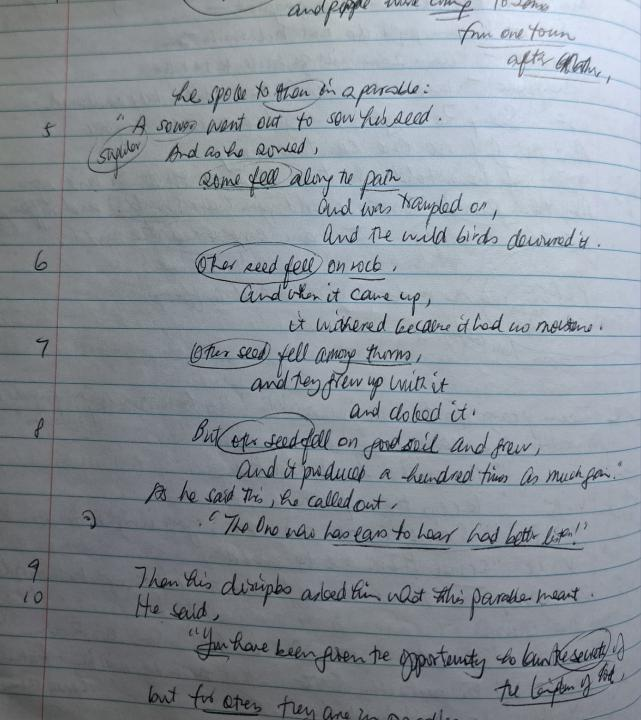 and people were coming to
from one town
after another,
he spoke to them in a parable:
5 "A sower went out to sow his seed.
And as he sowed,
some fell along the path
and was trampled on,
and the wild birds devoured it.
6 Other seed fell on rock,
and when it came up,
it withered because it had no moisture.
7 Other seed fell among thorns,
and they grew up with it
and choked it.
8 But other seed fell on good soil and grew,
and it produced a hundred times as much grain."
As he said this, he called out,
"The One who has ears to hear had better listen!"
9 Then his disciples asked him what this parable meant.
10 He said,
"You have been given the opportunity to know the secrets of
the kingdom of God,
but for others they are in